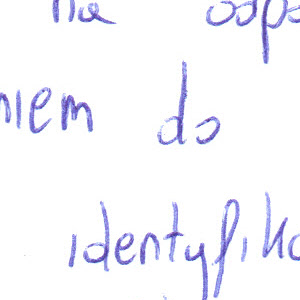 na odps
niem do
identyfika